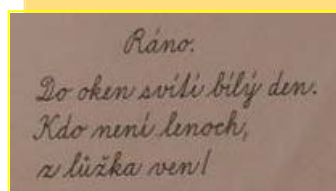 Ráno.
Do oken svítí bílý den.
Kdo není lenoch,
z lůžka ven!